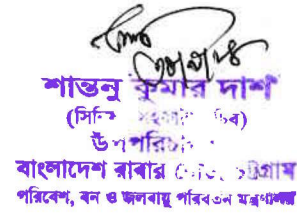 শান্তনু কুমার দাশ
(সিনিয়র
উপপরিচালক
বাংলাদেশ রাবার বোর্ড, চট্টগ্রাম
পরিবেশ, বন ও জলবায়ু পরিবর্তন মন্ত্রণালয়